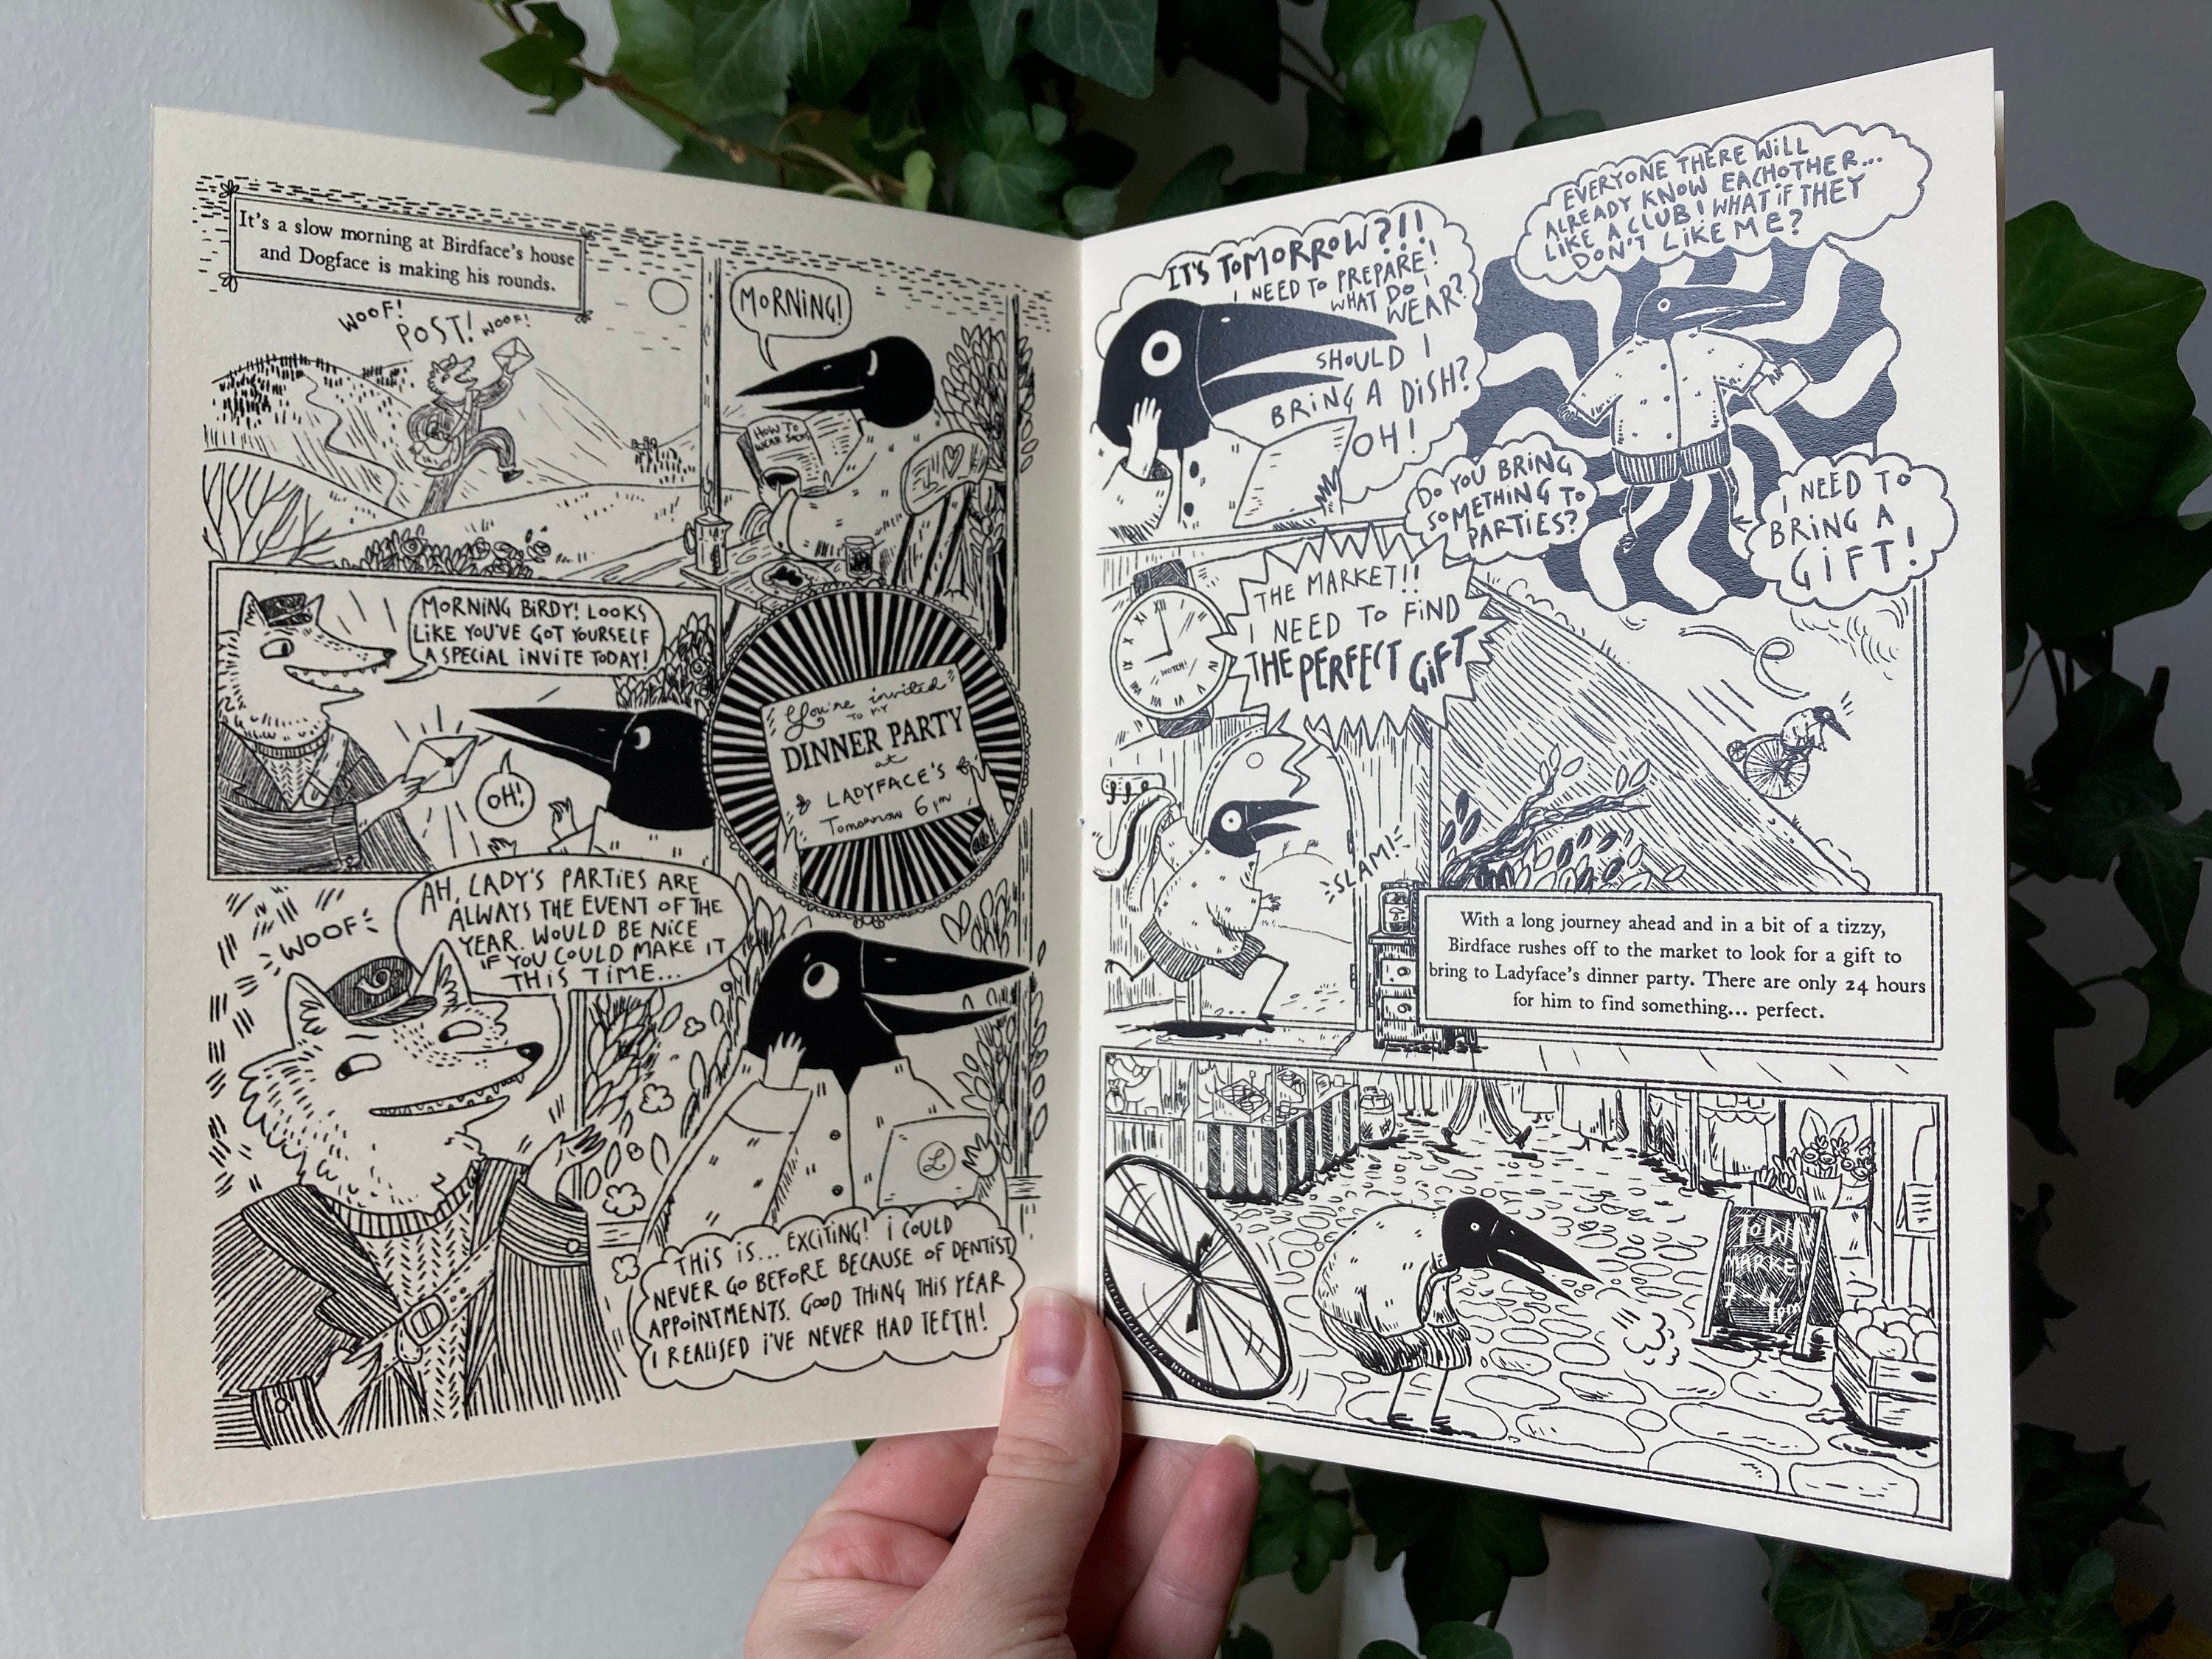 It's a slow morning at Birdface's house
and Dogface is making his rounds.
WOOF!
POST!
WOOF!
MORNING!
HOW TO
WEAR SOCKS
MORNING BIRDY! LOOKS
LIKE YOU'VE GOT YOURSELF
A SPECIAL INVITE TODAY!
OH!
You're invited
TO MY
DINNER PARTY
at
LADYFACE'S
Tomorrow 6pm
WOOF
AH, LADY'S PARTIES ARE
ALWAYS THE EVENT OF THE
YEAR. WOULD BE NICE
IF YOU COULD MAKE IT
THIS TIME...
L
THIS IS... EXCITING! I COULD
NEVER GO BEFORE BECAUSE OF DENTIST
APPOINTMENTS. GOOD THING THIS YEAR
I REALISED I'VE NEVER HAD TEETH!
IT'S TOMORROW?!!
I NEED TO PREPARE!
WHAT DO I
WEAR?
SHOULD I
BRING A DISH?
OH!
EVERYONE THERE WILL
ALREADY KNOW EACHOTHER...
LIKE A CLUB! WHAT IF THEY
DON'T LIKE ME?
DO YOU BRING
SOMETHING TO
PARTIES?
I NEED TO
BRING A
GIFT!
THE MARKET!!
I NEED TO FIND
THE PERFECT GIFT
WOTCH!
SLAM!
With a long journey ahead and in a bit of a tizzy,
Birdface rushes off to the market to look for a gift to
bring to Ladyface's dinner party. There are only 24 hours
for him to find something... perfect.
TOWN
MARKET
7-4pm